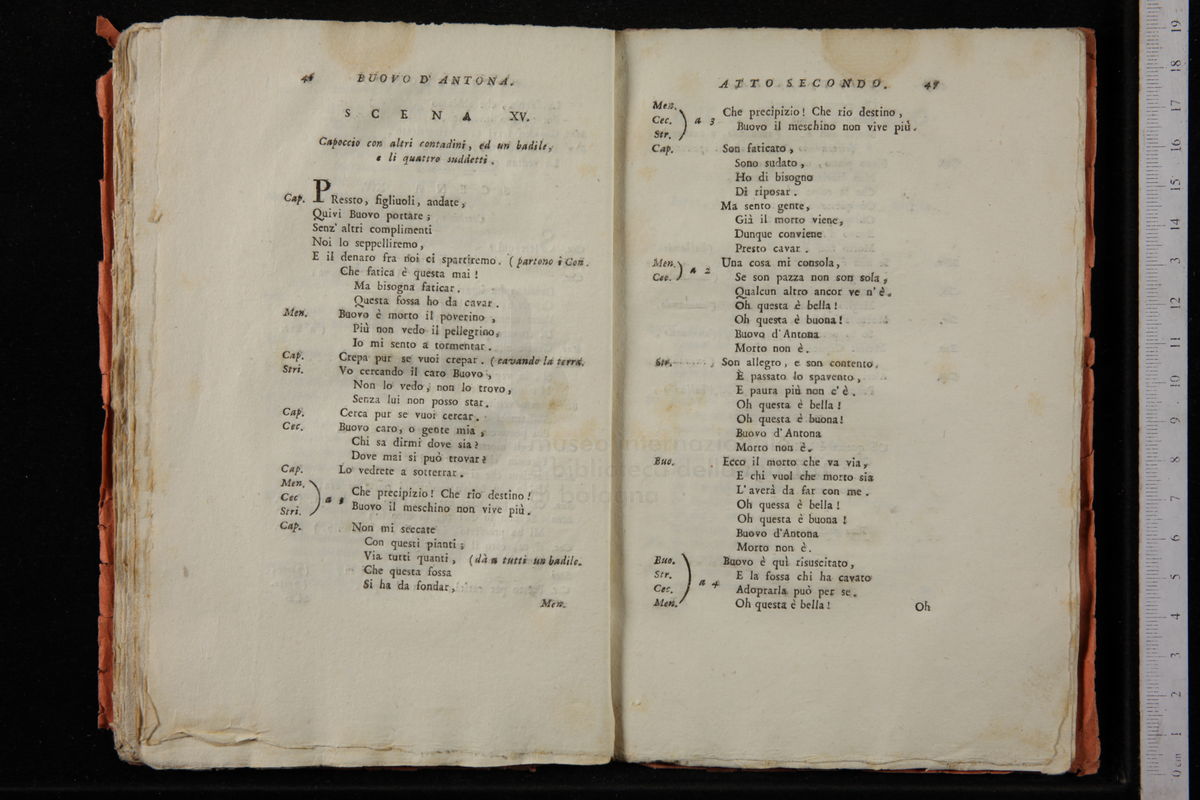 46 BUOVO D' ANTONA.
SCENA XV.
Capoccio con altri contadini, ed un badile,
e li quattro suddetti.
Cap. PRessto, figliuoli, andate,
Quivi Buovo portare;
Senz' altri complimenti
Noi lo seppelliremo,
E il denaro fra noi ci spartiremo. (partono i Con.
Che fatica è questa mai!
Ma bisogna faticar.
Questa fossa ho da cavar.
Men. Buovo è morto il poverino,
Più non vedo il pellegrino,
Io mi sento a tormentar.
Cap. Crepa pur se vuoi crepar. (cavando la terra.
Stri. Vo cercando il caro Buovo,
Non lo vedo, non lo trovo,
Senza lui non posso star.
Cap. Cerca pur se vuoi cercar.
Cec. Buovo caro, o gente mia,
Chi sa dirmi dove sia?
Dove mai si può trovar?
Cap. Lo vedrete a sotterrar.
Men.
Cec
Stri. ) a 3 Che precipizio! Che rio destino!
Buovo il meschino non vive più.
Cap. Non mi seccate
Con questi pianti;
Via tutti quanti, (dà a tutti un badile.
Che questa fossa
Si ha da fondar,
Men.
ATTO SECONDO. 47
Men.
Cec.
Str. ) a 3 Che precipizio! Che rio destino,
Buovo il meschino non vive più.
Cap. Son faticato,
Sono sudato,
Ho di bisogno
Di riposar.
Ma sento gente,
Già il morto viene,
Dunque conviene
Presto cavar.
Men.
Cec. ) a 2 Una cosa mi consola,
Se son pazza non son sola,
Qualcun altro ancor ve n'è.
Oh questa è bella!
Oh questa è buona!
Buovo d'Antona
Morto non è.
Str. Son allegro, e son contento,
È passato lo spavento,
E paura più non c'è.
Oh questa è bella!
Oh questa è buona!
Buovo d'Antona
Morto non è.
Buo. Ecco il morto che va via,
E chi vuol che morto sia
L'averà da far con me.
Oh quessa è bella!
Oh questa è buona!
Buovo d'Antona
Morto non è.
Buo.
Str.
Cec.
Men. ) a 4 Buovo è quì risuscitato,
E la fossa chi ha cavato
Adoprarla può per se.
Oh questa è bella!
Oh
museo internazionale
e biblioteca della
di bologna
0 cm 1 2 3 4 5 6 7 8 9 10 11 12 13 14 15 16 17 18 19